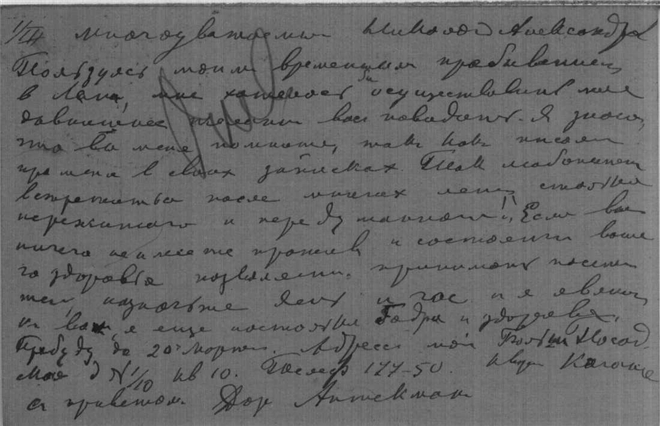 1/III многоуважаемый Николай Александр
Пользуясь моим временным пребыванием
в мне хотелось б осуществить мое
давнишнее вас повидать. Я знаю,
что вы меня помните, так как писали
про меня в своих записках. Так любопытно
встретиться после многих лет, столько
пережитого и передуманного!! Если вы
ничего не имеете против и состояние ваше
го здоровья позволяет принимать посети
тей, назначьте день и час и я явлюсь
к вам, я еще настолько бодра и здорова.
Пробуду до 20го марта. Адресс мой
д N 1/10 кв 10. Телеф 177-50. кварт Когана
С приветом Аптекман